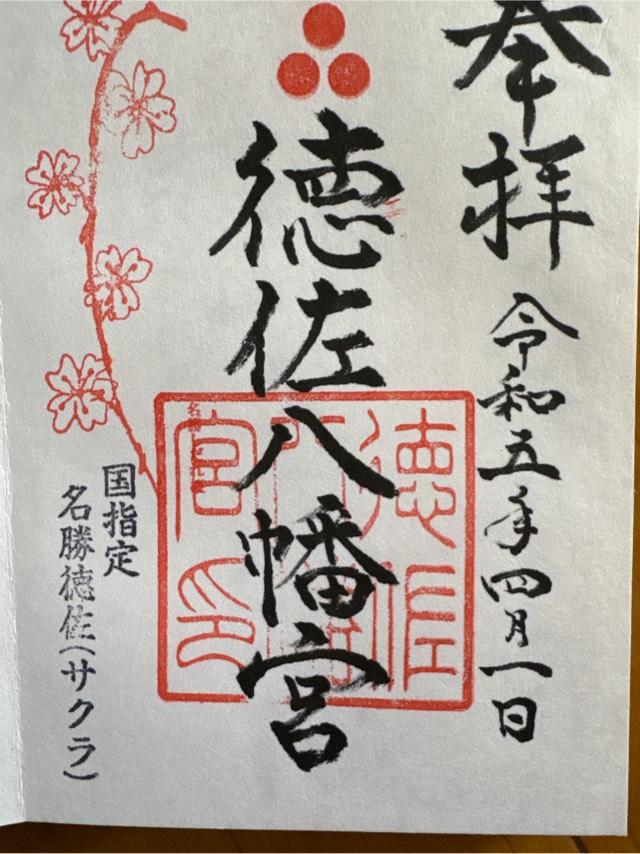 奉拝
令和五年四月一日
徳佐八幡宮
徳佐八幡宮印
国指定
名勝徳佐(サクラ)